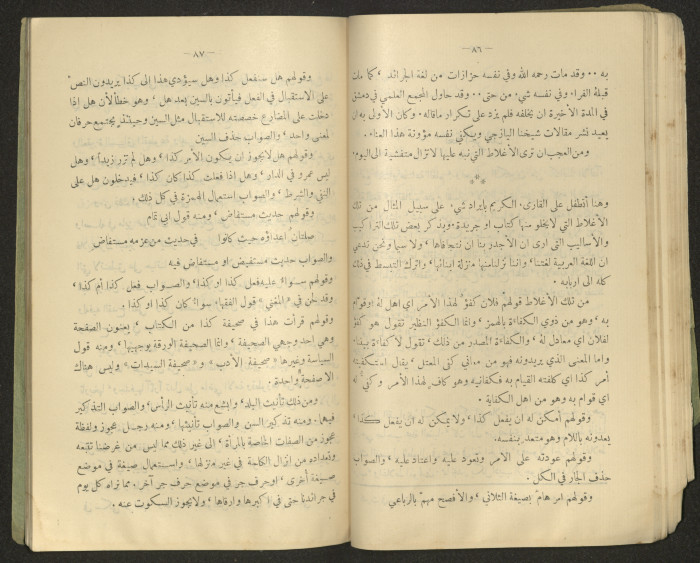 — ٨٦ —
به ٠٠ وقد مات رحمه الله وفي نفسه حزازات من لغة الجرائد، كما مات
قبله الفراء وفي نفسه شيء من حتى ٠٠ وقد حاول المجمع العلمي في دمشق
في المدة الاخيرة ان يخلفه فلم يزد على تكرار ماقاله. وكان الأولى به ان
يعيد نشر مقالات شيخنا اليازجي ويكفي نفسه مؤونة هذا العناء.
ومن العجب ان ترى الأغلاط التي نبه عليها لا تزال متفشية الى اليوم.
***
وهنا أتطفل على القارىء الكريم بايراد شيء على سبيل المثال من تلك
الأغلاط التي لا يخلو منها كتاب او جريدة، وبذكر بعض تلك التراكيب
والأساليب التي ارى ان الأجدر بنا ان نتحاماها، ولا سيما ونحن ندعي
ان اللغة العربية لغتنا، واننا ننزلها منا منزلة ابنائها، واترك التبسط في ذلك
كله الى اربابه.
من تلك الأغلاط قولهم فلان كفؤ لهذا الأمر اي اهل له او قوام
به، وهو من ذوي الكفاءة بالهمز، وانما الكفؤ النظير تقول هو كفؤ
لفلان اي معادل له، والكفاءة المصدر من ذلك، تقول لا كفاءة بينها
واما المعنى الذي يريدونه فهو من معاني كفى المعتل، يقال استكفيته
أمر كذا اي كلفته القيام به فكفانيه وهو كاف لهذا الأمر وكفي له
اي قوام به وهو من اهل الكفاية.
وقولهم أمكن له ان يفعل كذا، ولا يمكن له ان يفعل كذا،
يعدونه باللام وهو متعد بنفسه.
وقولهم عودته على الامر وتعود عليه واعتاد عليه، والصواب
حذف الجار في الكل.
وقولهم امر هام بصيغة الثلاثي، والأفصح مهم بالرباعي
— ٨٧ —
وقولهم هل سنفعل كذا وهل سيؤدي هذا الى كذا يريدون النص
على الاستقبال في الفعل فيأتون بالسين بعد هل، وهو خطأ لأن هل اذا
دخلت على المضارع خصصته للاستقبال مثل السين وحينئذ يجتمع حرفان
لمعنى واحد، والصواب حذف السين
وقولهم هل لا يجوز ان يكون الأمر كذا، وهل لم تر زيداً، وهل
ليس عمرو في الدار، وهل اذا فعلت كذا كان كذا، فيدخلون هل على
النفي والشرط، والصواب استعمال الهمزة في كل ذلك.
وقولهم حديث مستفاض، ومنه قول ابي تمام
صلتان أعداؤه حيث كانوا في حديث من عزمه مستفاض
والصواب حديث مستفيض او مستفاض فيه
وقولهم سواء عليه فعل كذا او كذا، والصواب فعل كذا أم كذا،
وقد لحن في « المغني » قول الفقهاء سواء كان كذا او كذا.
وقولهم قرأت هذا في صحيفة كذا من الكتاب، يعنون الصفحة
وهي احد وجهي الصحيفة، وانما الصحيفة الورقة بوجهيها، ومنه قول
السياسة وغيرها « صحيفة الأدب » و « صحيفة السيدات » وليس هناك
الا صفحة واحدة.
ومن ذلك تأنيث البلد، وابشع منه تأنيث الرأس، والصواب التذكير
فيها. ومنه تذكير السن والصواب تأنيثها، ومنه رجل عجوز ولفظة
عجوز من الصفات الخاصة بالمرأة، الى غير ذلك مما ليس من غرضنا تتبعه
وتعداده من انزال الكلمة في غير منزلها، واستعمال صيغة في موضع
صيغة أخرى، او حرف جر في موضع حرف جر آخر. مما تراه كل يوم
في جرائدنا حتى في اكبرها وارقاها، ولا يجوز السكوت عنه.